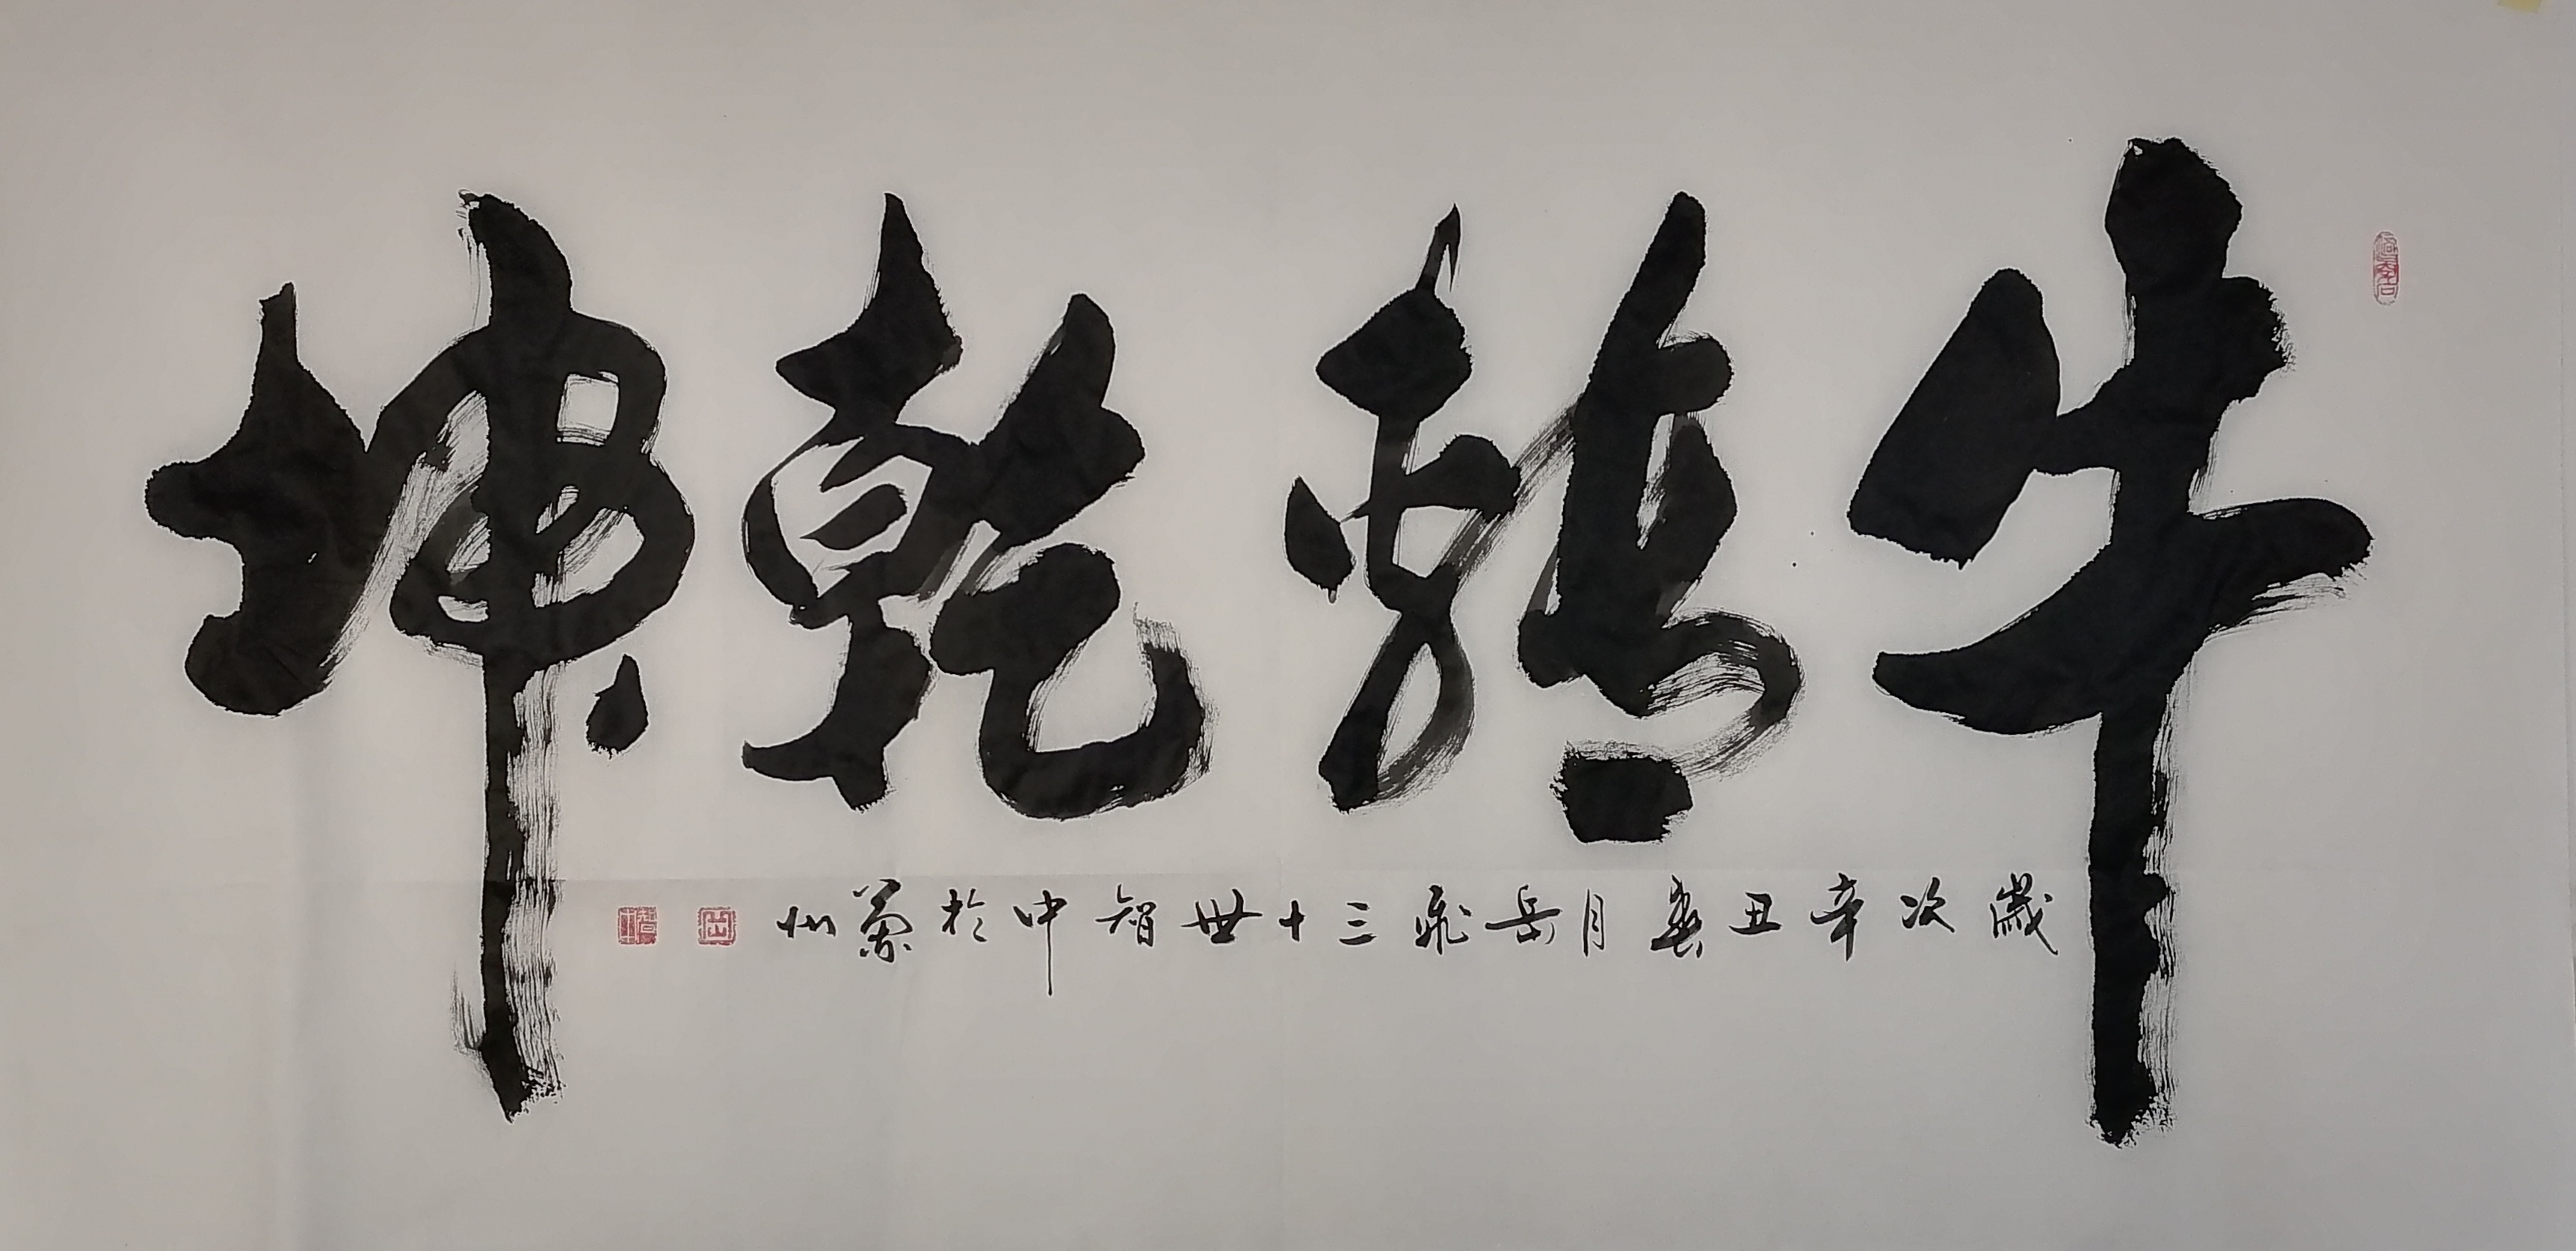 牛轉乾坤
歲次辛丑春月岳飛三十世智中於蘭州